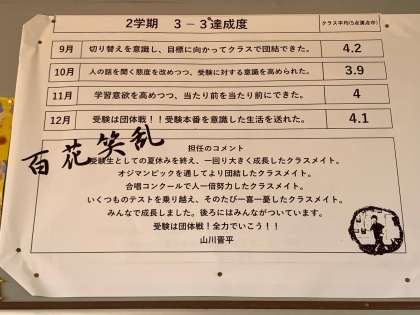 2学期 3－3 達成度
クラス平均(5点満点中)
9月 切り替えを意識し、目標に向かってクラスで団結できた。 4.2
10月 人の話を聞く態度を改めつつ、受験に対する意識を高められた。 3.9
11月 学習意欲を高めつつ、当たり前を当たり前にできた。 4
12月 受験は団体戦！！受験本番を意識した生活を送れた。 4.1
百花笑乱
担任のコメント
受験生としての夏休みを終え、一回り大きく成長したクラスメイト。
オジマンピックを通してより団結したクラスメイト。
合唱コンクールで人一倍努力したクラスメイト。
いくつものテストを乗り越え、そのたび一喜一憂したクラスメイト。
みんなで成長しました。後ろにはみんながついています。
受験は団体戦！全力でいこう！！
山川晋平